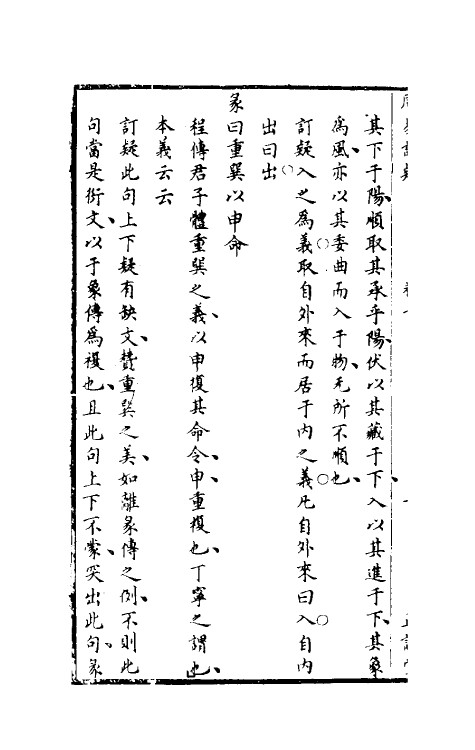 其下于陽順取其承乎陽伏以其藏于下入以其進于下其象
爲風亦以其委曲而入于物无所不順也
訂疑入之爲義取自外來而居于內之義凡自外來曰入自內
出曰出
彖曰重巽以申命
程傳君子體重巽之義以申復其命令申重複也丁寧之謂也
本義云云
訂疑此句上下疑有缺文贊重巽之美如離彖傳之例不則此
句當是衍文以于象傳爲複也且此句上下不蒙突出此句彖